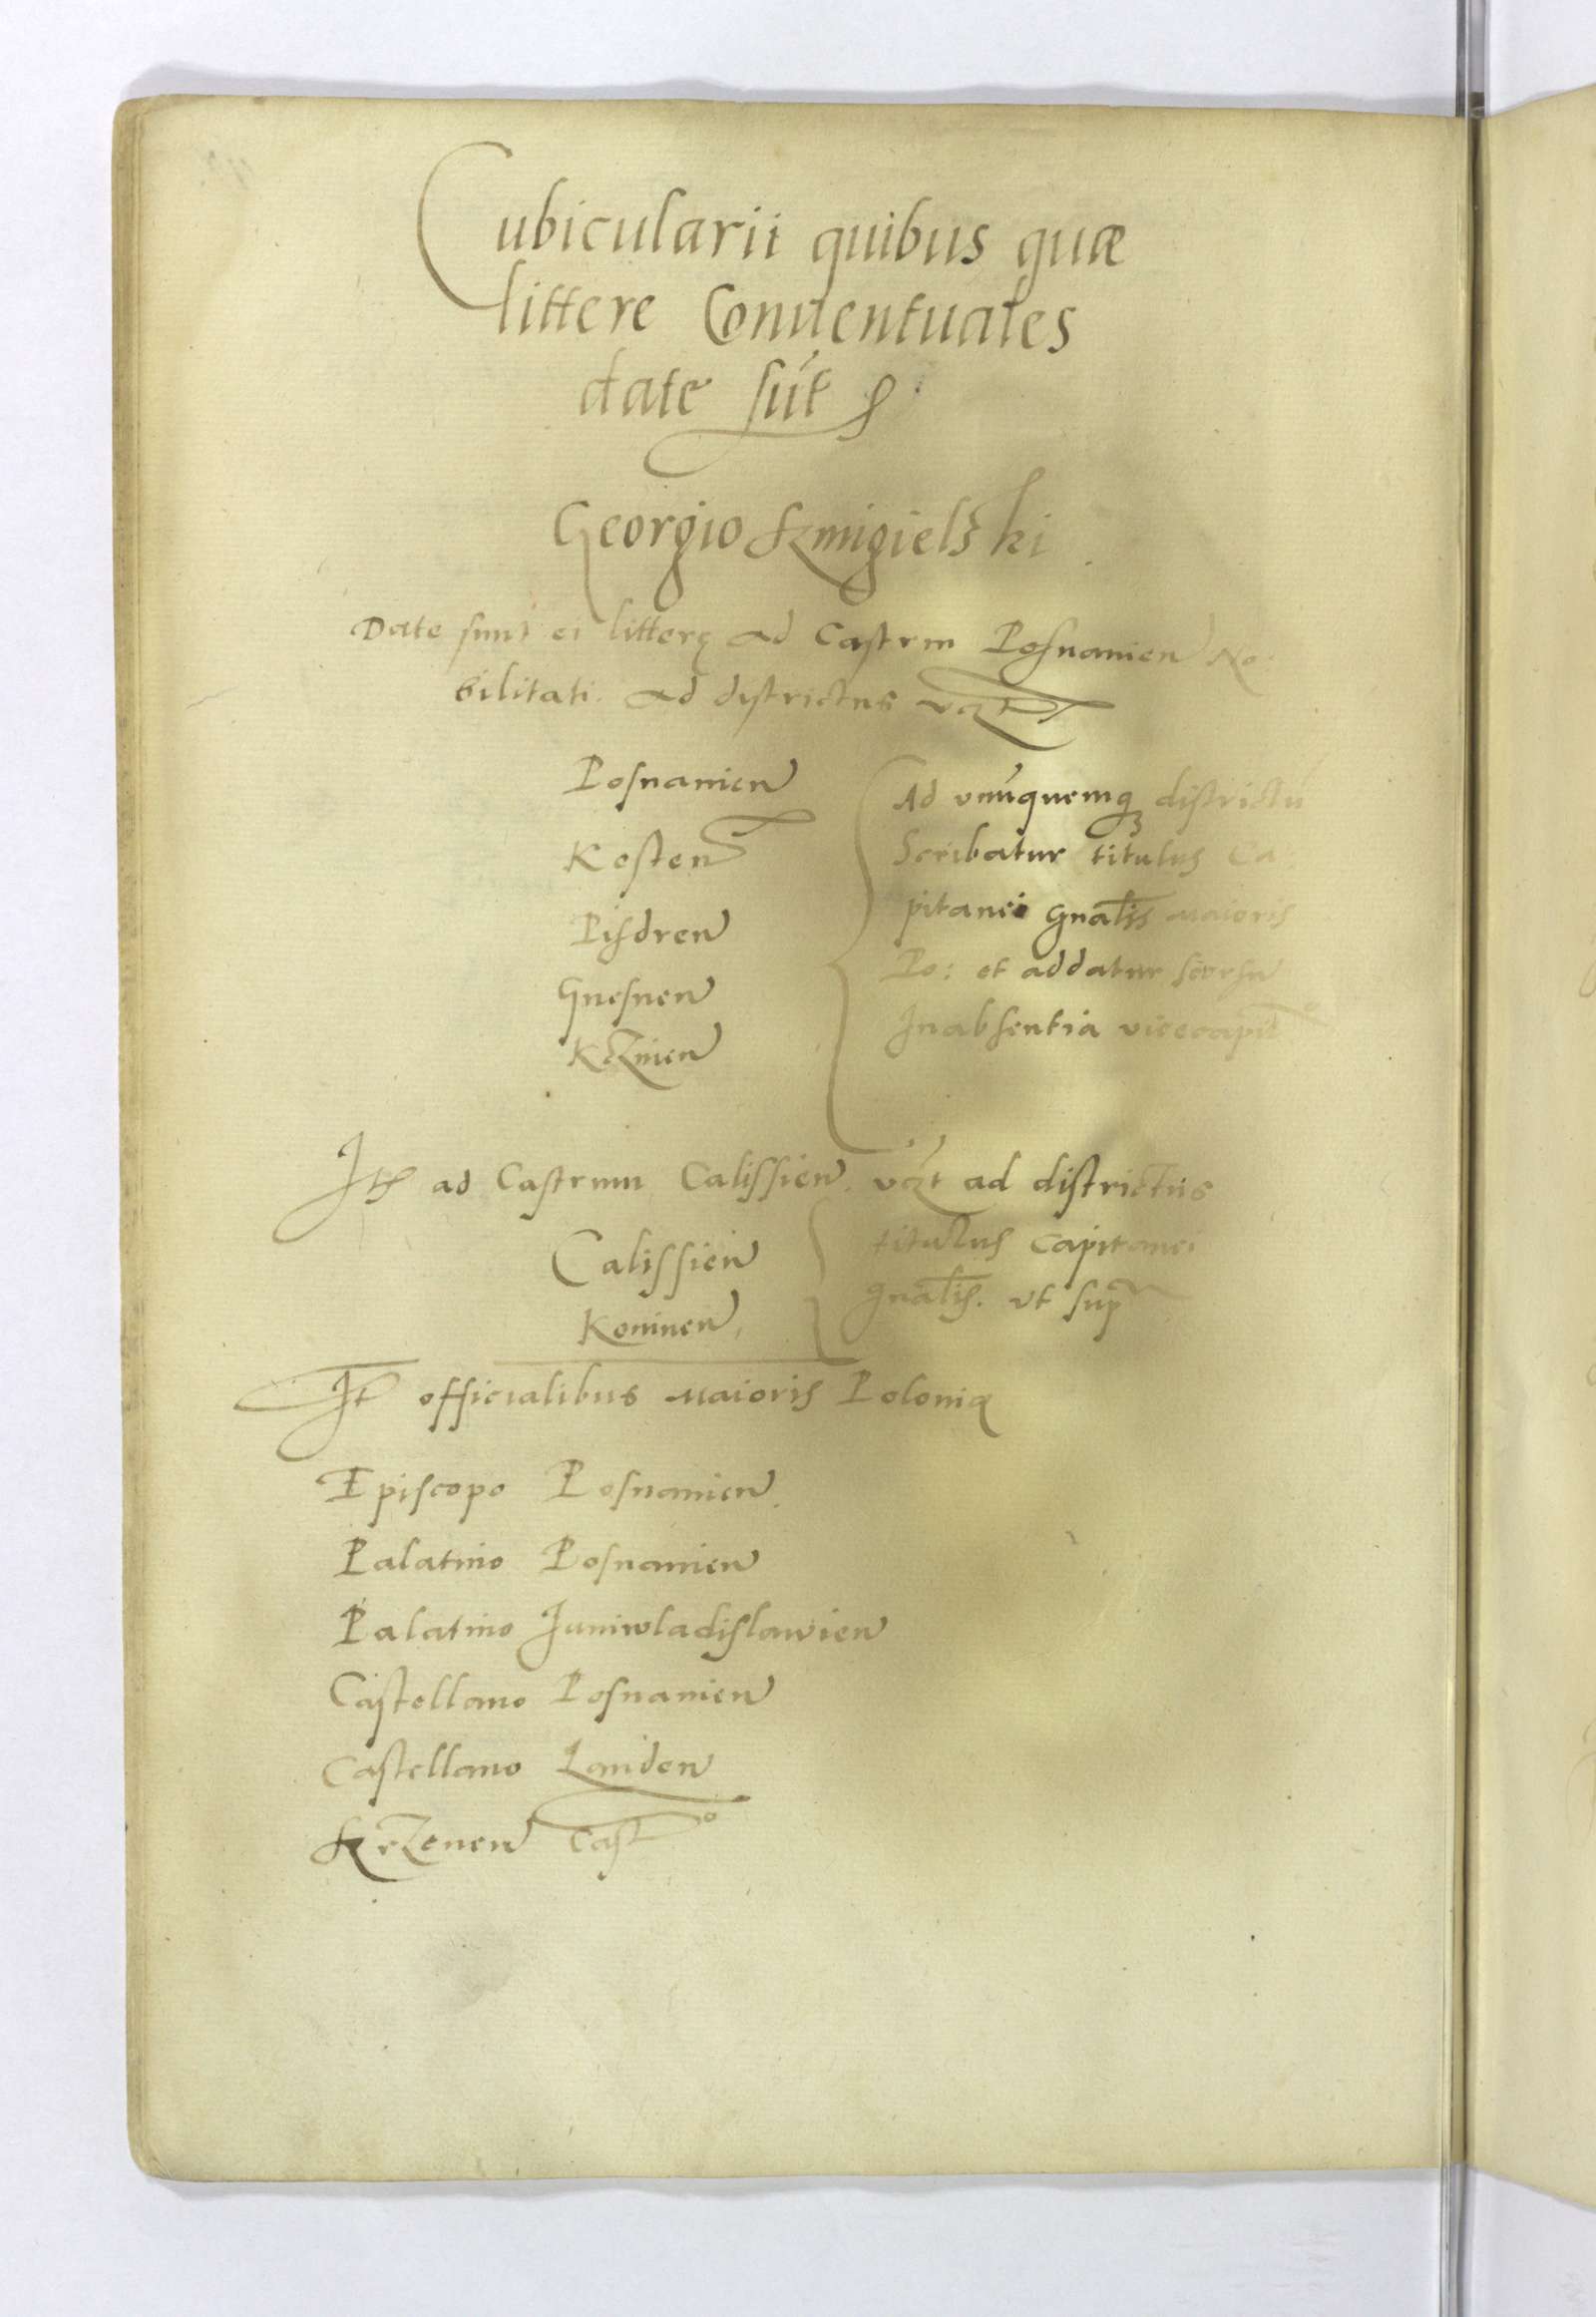 Cubicularii quibus quæ
littere Conuentuales
date sūt
Georgio Szmigielski
Date sunt ei litterę ad Castrm Posnanien No
bilitati. ad districtus vczt
Posnanien
Kosten
Pisdren
Gnesnen
Kczinen
Ad vnūquemq; districtū
Scribatur titulus Ca
pitanei Gnalis Maioris
Po: et addatur seorsū
In absentia vicecapit
Itē ad Castrum Calissien. vczt ad districtus
Calissien
Koninen
titulus Capitanei
Gnalis. vt supra
It officialibus Maioris Polonię
Episcopo Posnanien
Palatino Posnanien
Palatino Juniwladislawien
Castellano Posnanien
Castellano Landen
Cast°